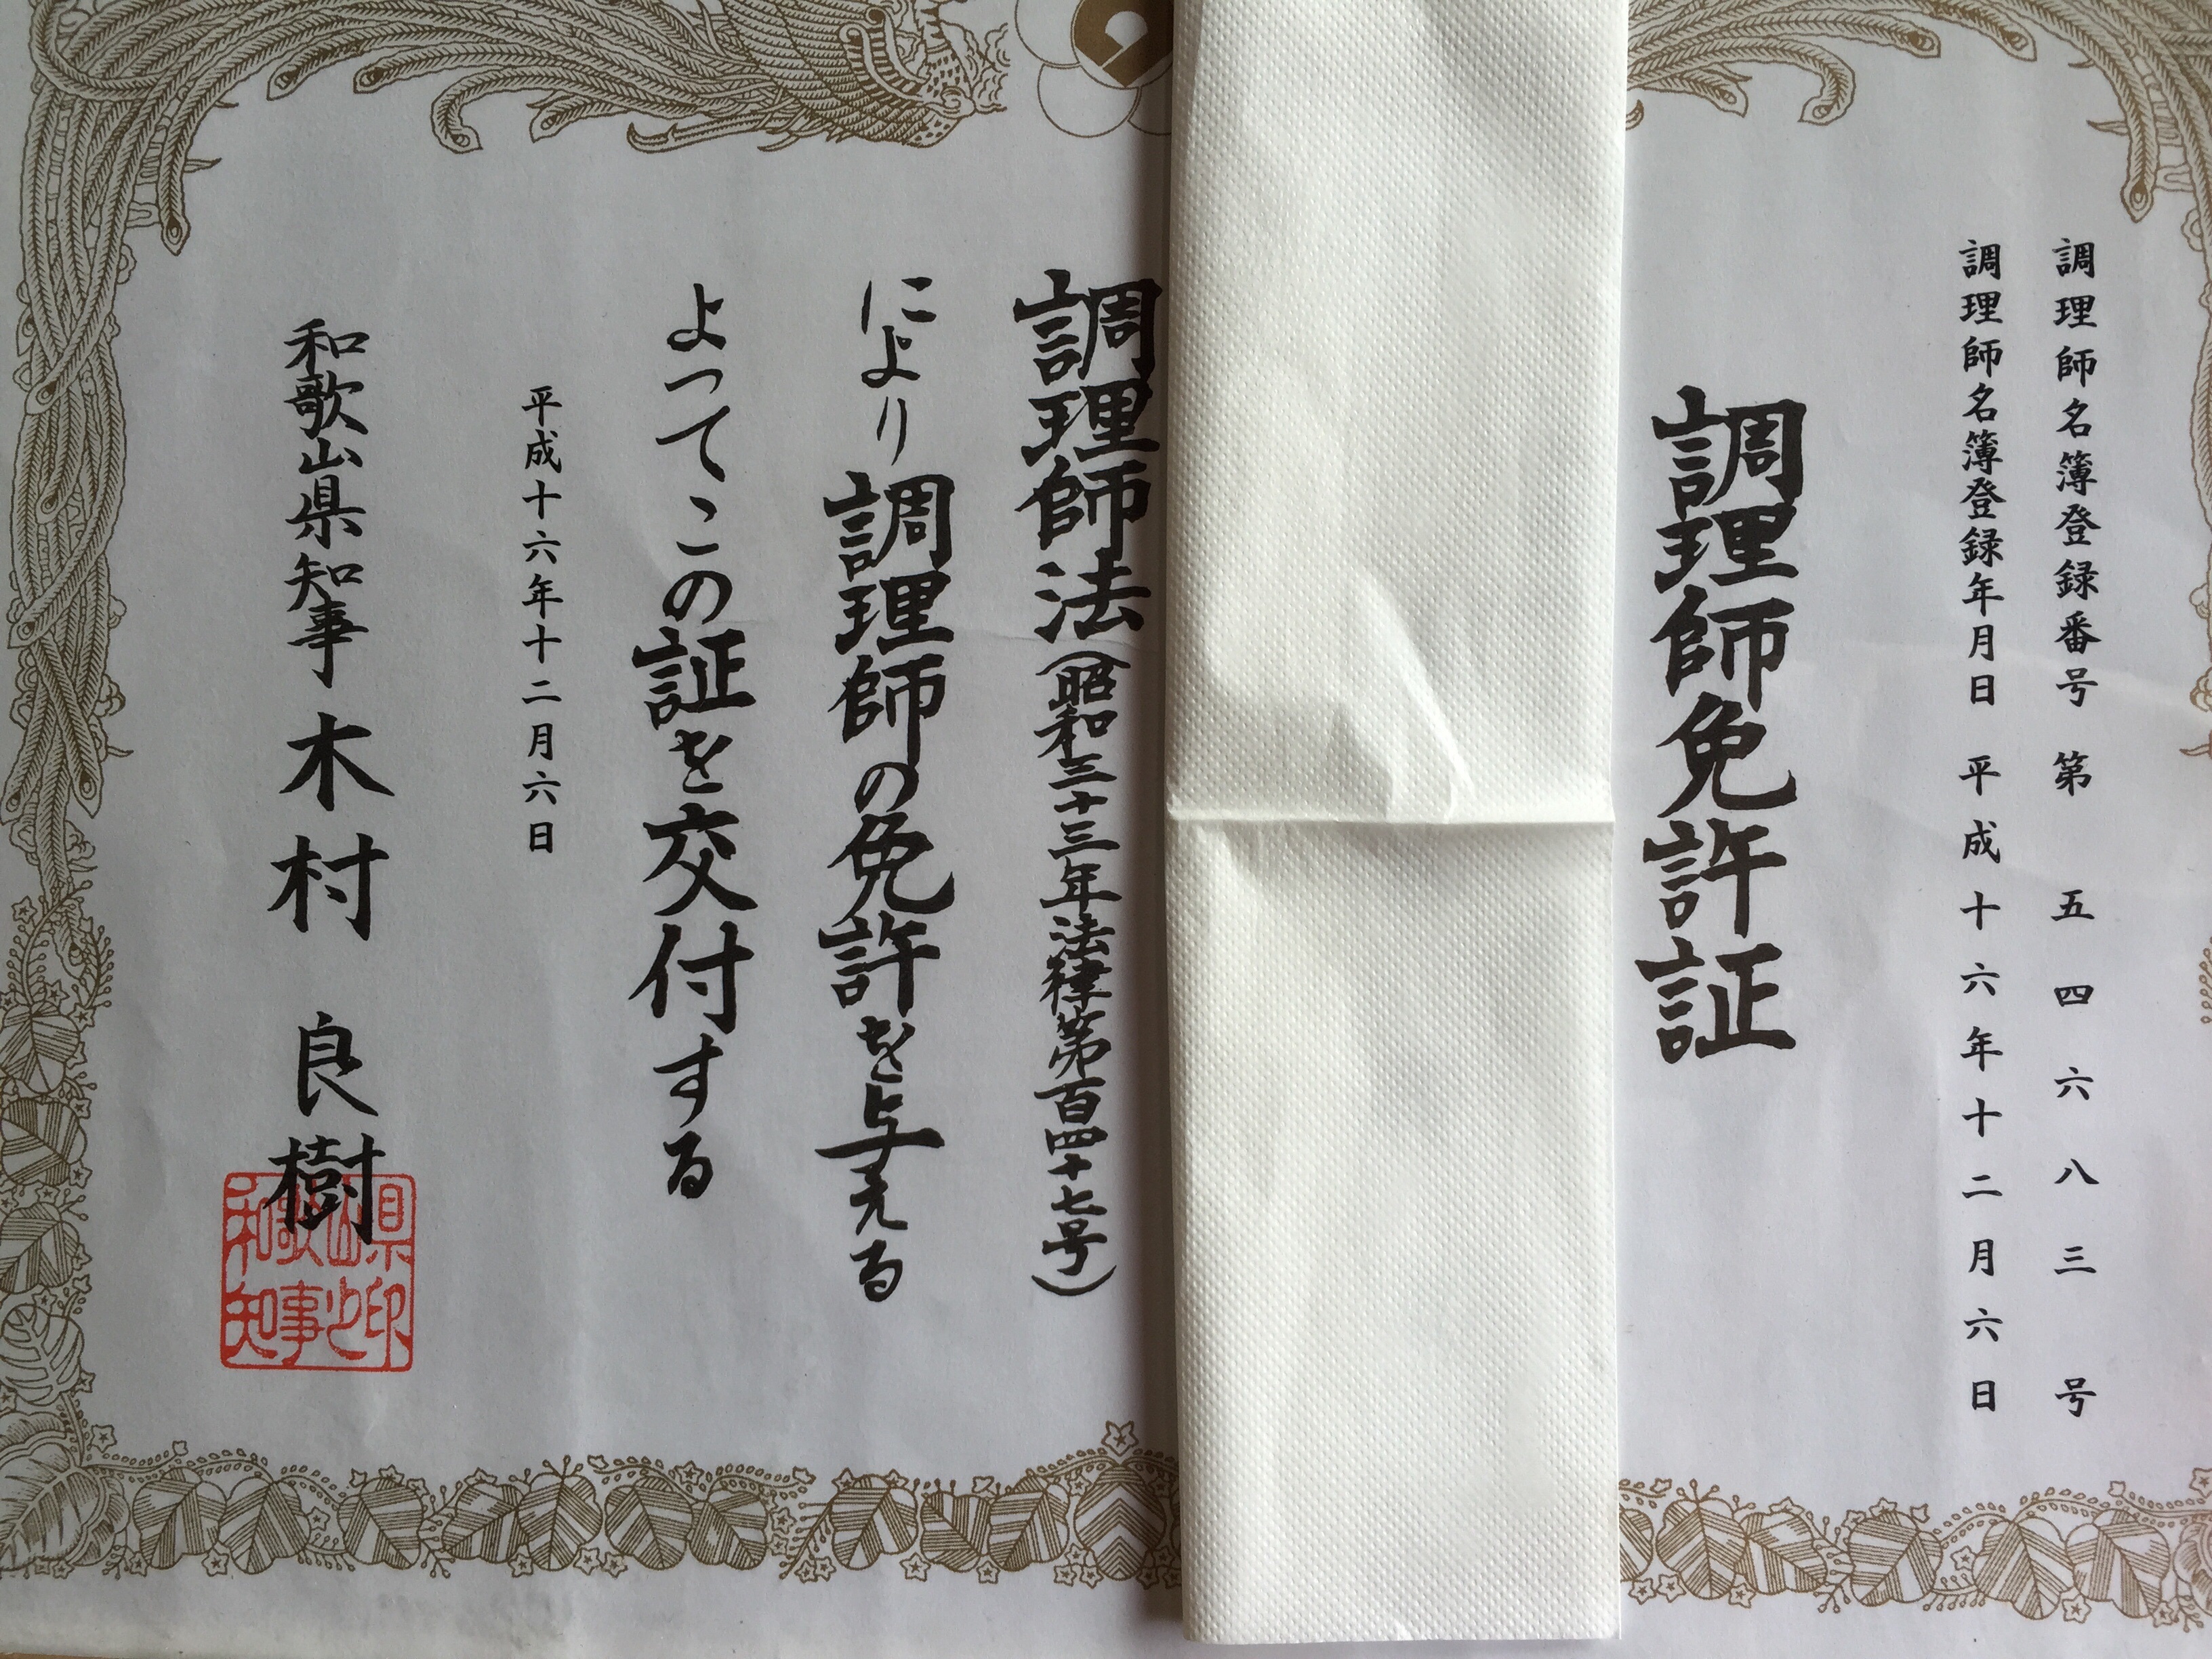 調理師名簿登録番号 第 五四六八三号
調理師名簿登録年月日 平成十六年十二月六日
調理師免許証
調理師法(昭和三十三年法律第百四十七号)
により調理師の免許を与える
よつてこの証を交付する
平成十六年十二月六日
和歌山県知事 木村 良樹
和歌山県
知事之印